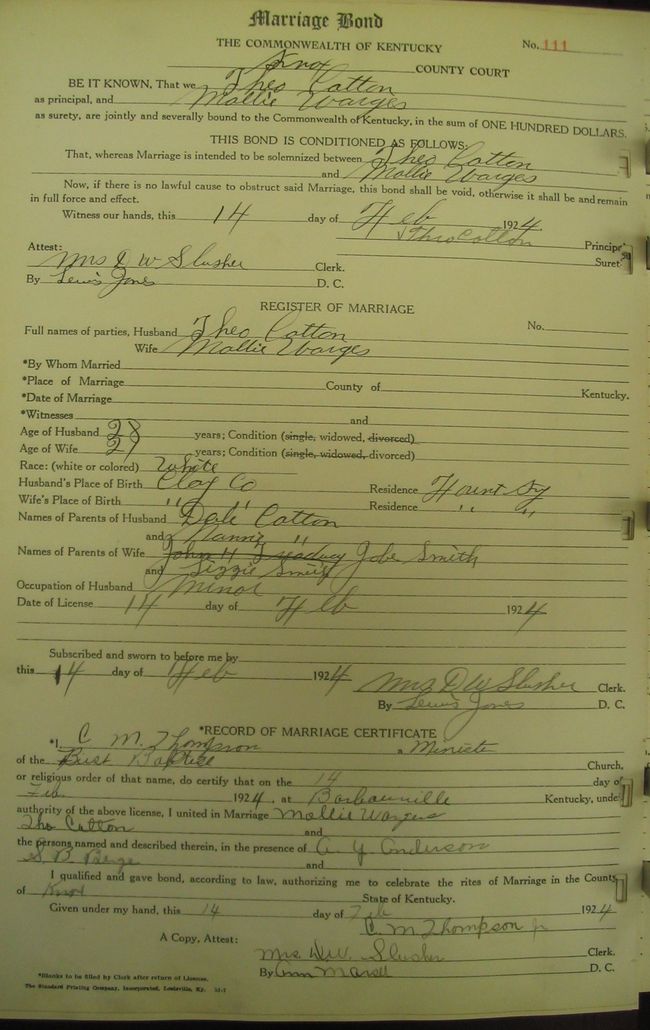 Marriage Bond
THE COMMONWEALTH OF KENTUCKY No. 111
Knox COUNTY COURT
BE IT KNOWN, That we Theo Catton
as principal, and Mollie Warges
as surety, are jointly and severally bound to the Commonwealth of Kentucky, in the sum of ONE HUNDRED DOLLARS.
THIS BOND IS CONDITIONED AS FOLLOWS:
That, whereas Marriage is intended to be solemnized between Theo Catton
and Mollie Warges
Now, if there is no lawful cause to obstruct said Marriage, this bond shall be void, otherwise it shall be and remain
in full force and effect.
Witness our hands, this 14 day of Feb 1924.
Theo Catton Principal
Attest: Suret
Mrs D W Slusher Clerk.
By Lewis Jones D. C.
REGISTER OF MARRIAGE
Full names of parties, Husband Theo Catton No.
Wife Mollie Warges
*By Whom Married
*Place of Marriage County of Kentucky.
*Date of Marriage
*Witnesses and
Age of Husband 28 years; Condition (single, widowed, divorced)
Age of Wife 27 years; Condition (single, widowed, divorced)
Race: (white or colored) White
Husband's Place of Birth Clay Co Residence Ky
Wife's Place of Birth " " Residence " "
Names of Parents of Husband Dale Catton
and Nannie "
Names of Parents of Wife John H Treadway Jobe Smith
and Lizzie Smith
Occupation of Husband Minor
Date of License 14 day of Feb 1924
Subscribed and sworn to before me by
this 14 day of Feb 1924 Mrs D W Slusher Clerk.
By Lewis Jones D. C.
*RECORD OF MARRIAGE CERTIFICATE
*I, C M Thompson a Ministe
of the Baptist Church,
or religious order of that name, do certify that on the 14 day of
Feb 1924, at Barbourville Kentucky, under
authority of the above license, I united in Marriage Mollie Warges
Theo Catton and
the persons named and described therein, in the presence of A. Y. Anderson
S. B. and
I qualified and gave bond, according to law, authorizing me to celebrate the rites of Marriage in the County
of Knox State of Kentucky.
Given under my hand, this 14 day of Feb 1924
C. M. Thompson jr
A Copy, Attest:
Mrs. D.W. Slusher Clerk.
By Ann D. C.
*Blanks to be filled by Clerk after return of License.
The Standard Printing Company, Incorporated, Louisville, Ky.